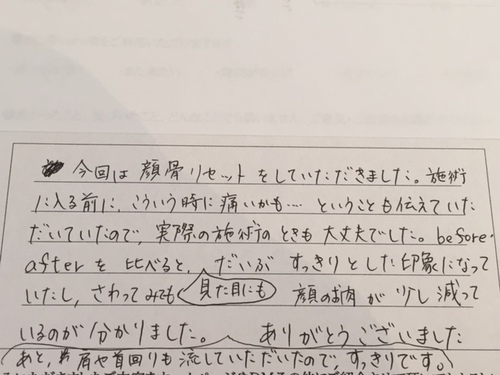 今回は顔骨リセットをしていただきました。施術
に入る前に、こういう時に痛いかも…ということも伝えていた
だいていたので、実際の施術のときも大丈夫でした。before・
afterを比べると、だいぶすっきりとした印象になって
いたし、さわってみても見た目にも顔のお肉が少し減って
いるのが分かりました。ありがとうございました
あと、肩や首回りも流していただいたので、すっきりです。